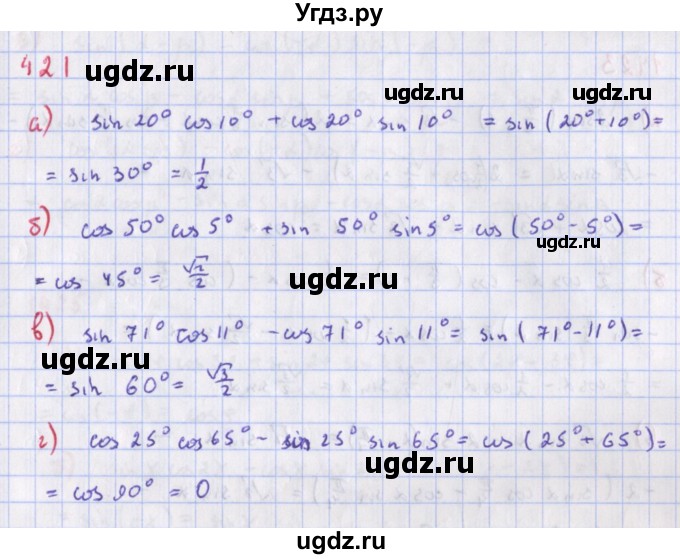 Угдз.ру
421
ugdz.ru
ugdz.ru
ugdz.ru
а) sin 20° cos 10° + cos 20° sin 10° = sin (20° + 10°) =
= sin 30° = 1/2
б) cos 50° cos 5° + sin 50° sin 5° = cos (50° - 5°) =
ugdz.ru
= cos 45° = √2/2
ugdz.ru
в) sin 71° cos 11° - cos 71° sin 11° = sin (71° - 11°) =
ugdz.ru
ugdz.ru
= sin 60° = √3/2
г) cos 25° cos 65° - sin 25° sin 65° = cos (25° + 65°) =
ugdz.ru
= cos 90° = 0
ugdz.ru